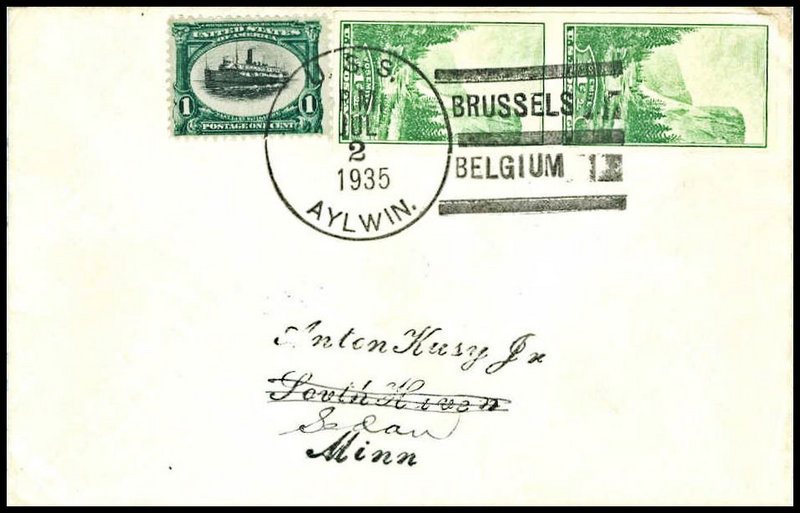 UNITED STATES
OF AMERICA
1 1
POSTAGE ONE CENT
U.S.S.
JUL
2
1935
AYLWIN.
BRUSSELS
BELGIUM
Anton Kusy Jr
South Haven
Sedan
Minn